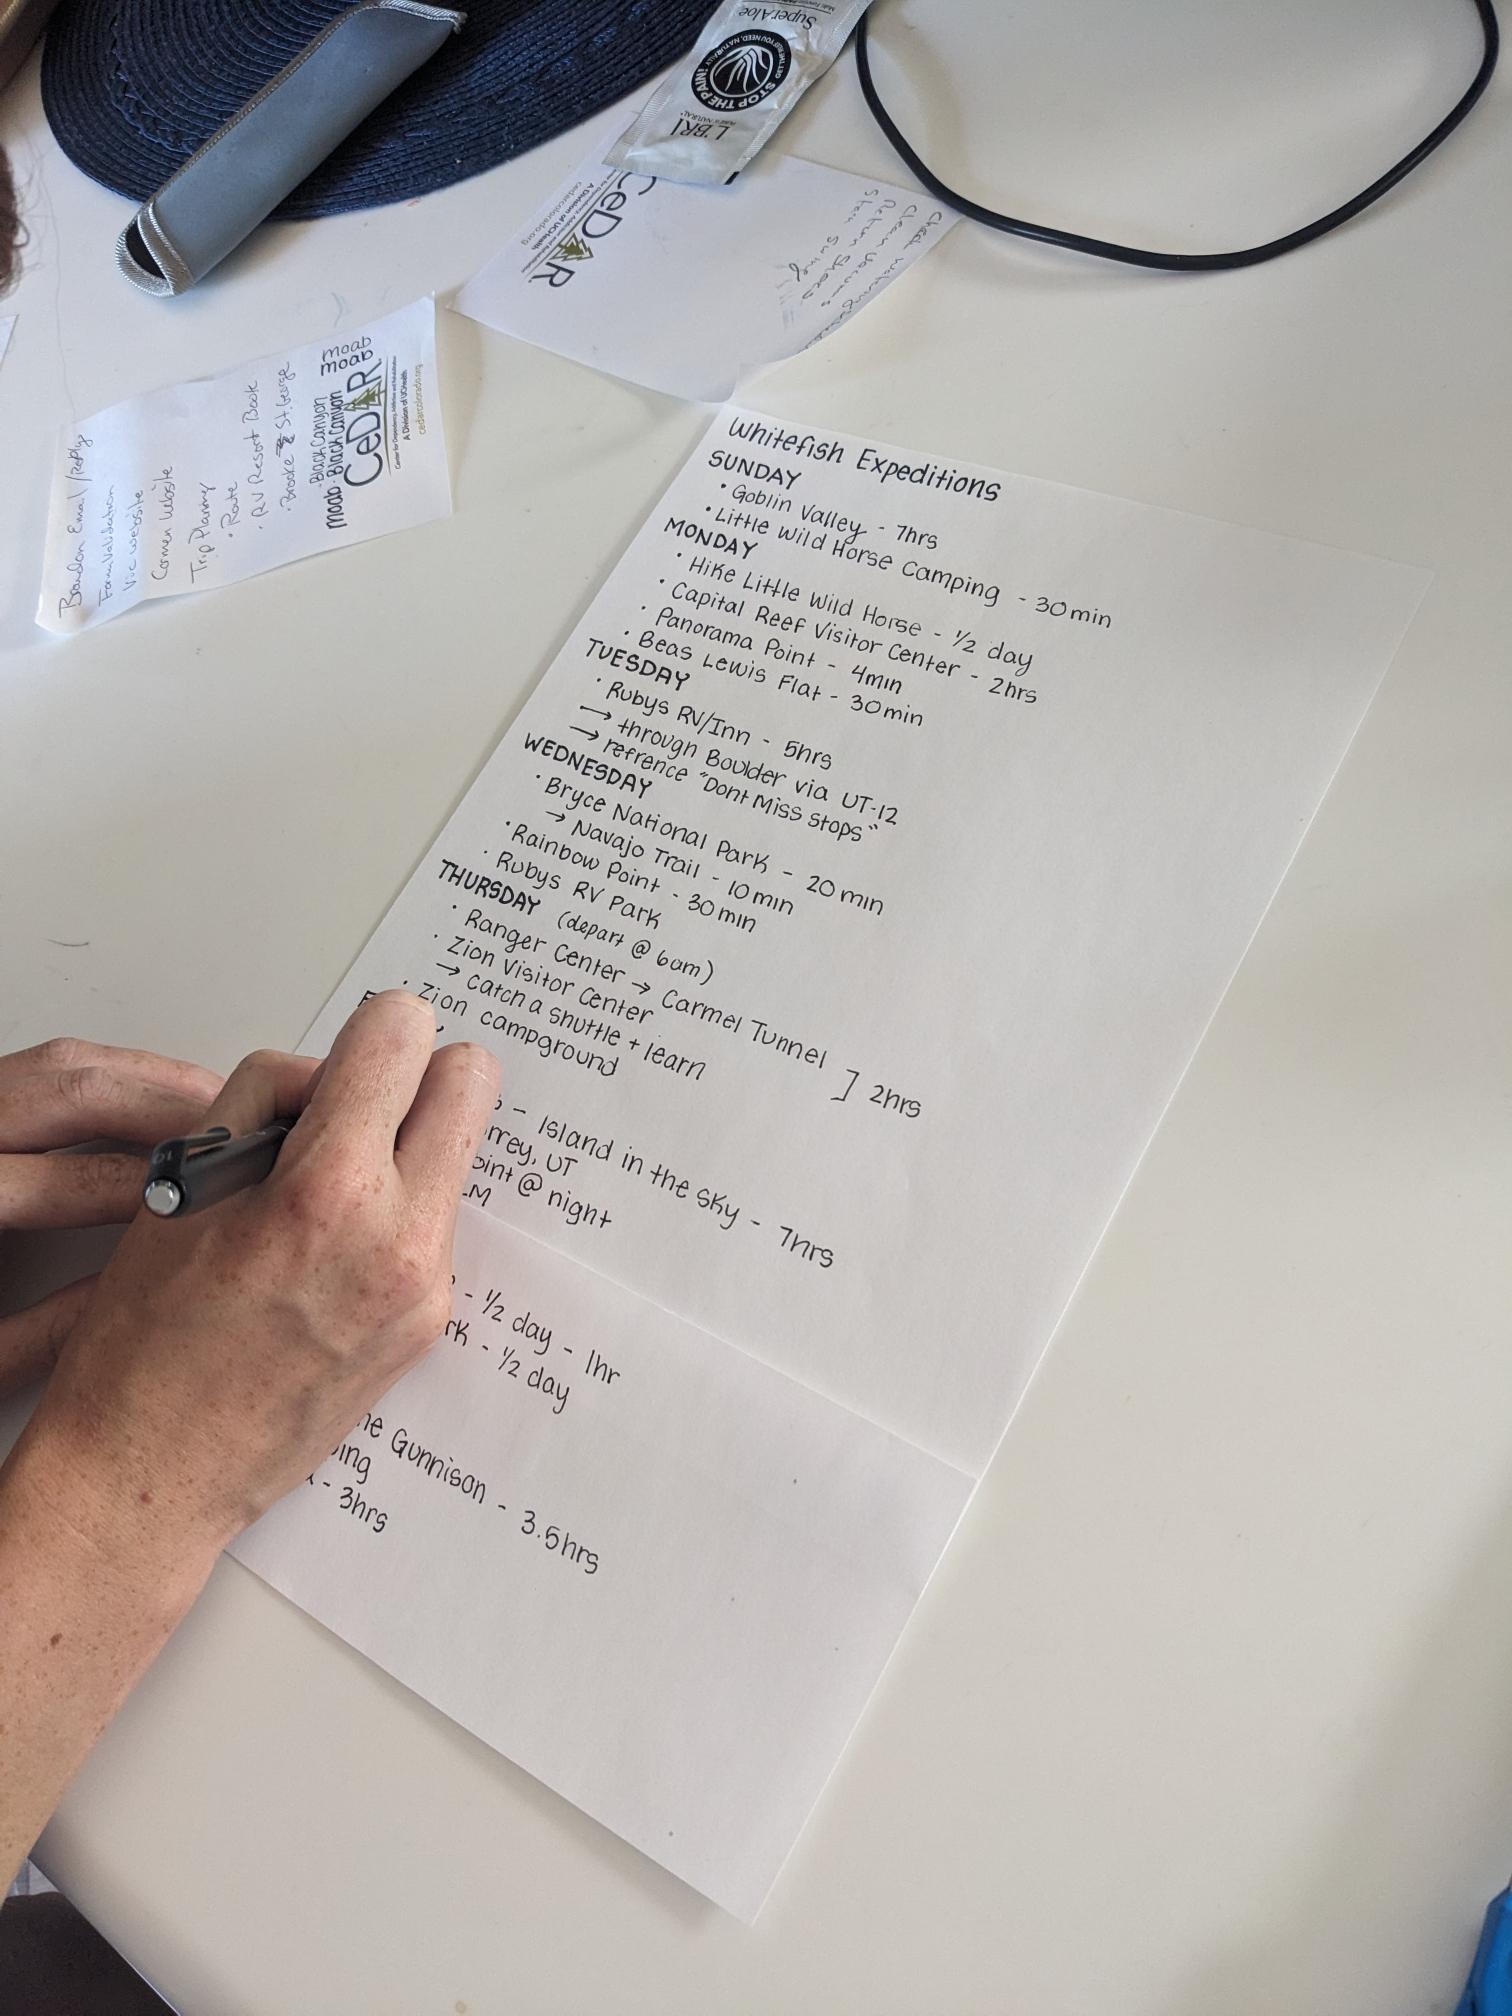 Whitefish Expeditions
SUNDAY
• Goblin Valley - 7hrs
• Little Wild Horse Camping - 30min
MONDAY
• Hike Little Wild Horse - 1/2 day
• Capital Reef Visitor Center - 2hrs
• Panorama Point - 4min
• Beas Lewis Flat - 30min
TUESDAY
• Rubys RV/Inn - 5hrs
→ through Boulder via UT-12
→ refrence "Dont Miss Stops"
WEDNESDAY
• Bryce National Park - 20min
→ Navajo Trail - 10min
• Rainbow Point - 30min
• Rubys RV Park
THURSDAY (depart @ 6am)
• Ranger Center → Carmel Tunnel
• Zion Visitor Center
→ catch a shuttle + learn
] 2hrs
• Zion campground
- Island in the Sky - 7hrs
UT
@ night
- 1/2 day - 1hr
- 1/2 day
Gunnison - 3.5hrs
- 3hrs
Brandon Email/reply
Form Validation
Vic website
Carmen Website
Trip Planning
• Route
• RV Resort Book
• Brooke St. George
moab • Black Canyon
• Black Canyon
moab
moab
CeDAR
Center for Dependency, Addiction and Rehabilitation
A Division of UCHealth
cedarcolorado.org
CeDAR
A Division of UCHealth
cedarcolorado.org
Clean Vacuums
Return Shoes
SuperAloe
GET THE RELIEF YOU NEED, NATURALLY
STOP THE PAIN!
L'BRI
PURE n' NATURAL
10